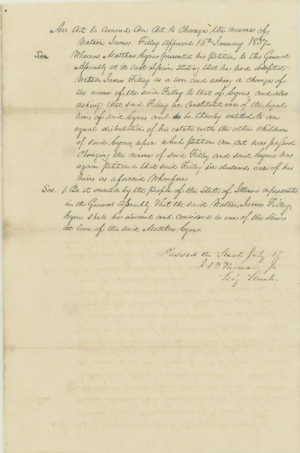 An Act to amend An Act to Change the name of
Watson James Filley Approved 16th January 1837
Whereas Matthew Cyrus presented his petition to the General
Assembly at its last session Stating that he had adopted
Watson James Filley as a son and asking a change of
the name of the said Filley to that of Cyrus, and also
asking that said Filley be constituted one of the legal
heirs of said Cyrus and be thereby entitled to an
equal distribution of his estate with the other children
of said Cyrus, upon which petition An act was passed
Changing the name of said Filley and said Cyrus was
again petitioned that said Filley be declared one of his
heirs as aforesaid Wherefore
Sec. 1. Be it enacted by the People of the State of Illinois represented
in the General Assembly That the said Watson James Filley
Cyrus shall be deemed and considered as one of the Heirs
at law of the said Matthew Cyrus.
Passed the Senate July 17
Secy Senate